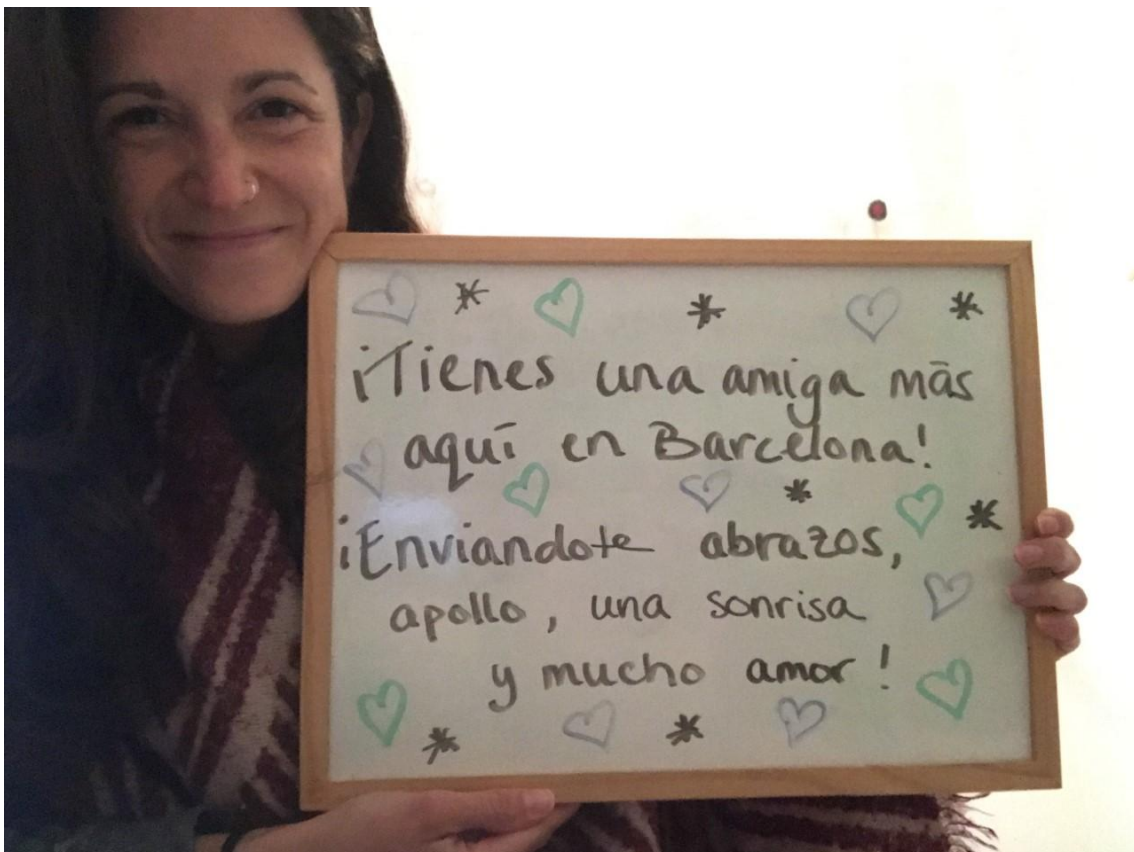 ¡Tienes una amiga más
aquí en Barcelona!
¡Enviandote abrazos,
apollo, una sonrisa
y mucho amor!